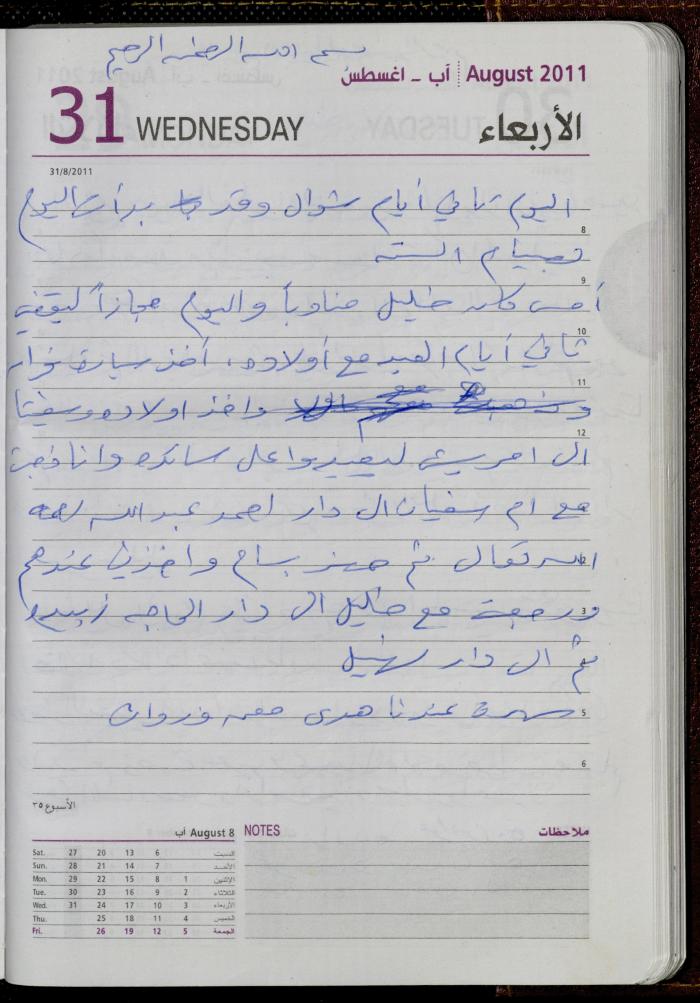 بسم الله الرحمن الرحيم
آب - اغسطس August 2011
31 WEDNESDAY الأربعاء
31/8/2011
اليوم ثاني أيام شوال وقد بدأت اليوم
8
بصيام السته
9
أمس كان خليل مناوباً واليوم مجازاً ليقضي
10
ثاني أيام العيد مع أولاده، أخذ سيارة
11
واخذ اولاده وسفيتا
12
ال ليعيدوا على وانا
مع ام سفيان ال دار احمد عبد الله رحمه
الله تعال ثم بسام واخذني عندهم
2
ورجعة مع خليل ال دار الحاجه زبيده
3
ثم ال دار سهيل
سهرة عندنا هدى
5
6
الأسبوع ٣٥
آب August 8
NOTES ملاحظات
Sat. 27 20 13 6 السبت
Sun. 28 21 14 7 الأحد
Mon. 29 22 15 8 1 الإثنين
Tue. 30 23 16 9 2 الثلاثاء
Wed. 31 24 17 10 3 الأربعاء
Thu. 25 18 11 4 الخميس
Fri. 26 19 12 5 الجمعة